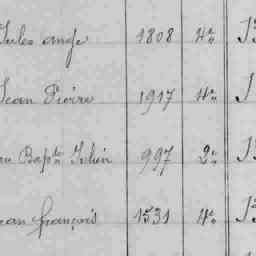 Jules ange 1808 4e
Jean Pierre 1917 4e
Bapte Julien 997 2e
Jean François 1531 4e